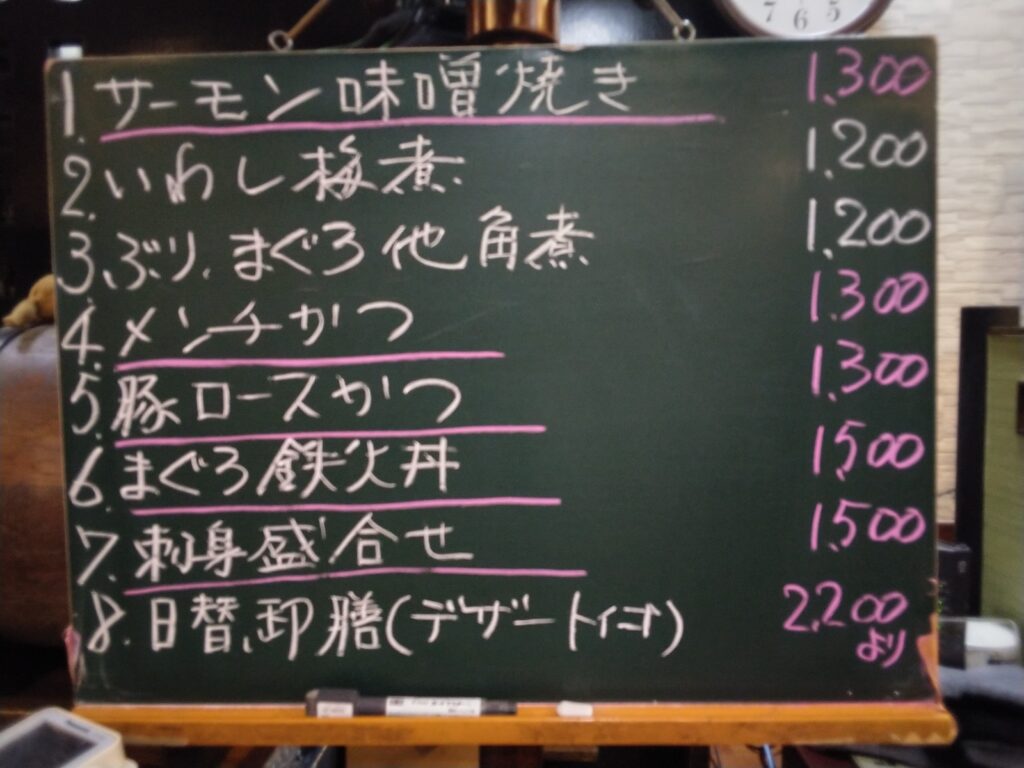 7 6 5
1. サーモン味噌焼き 1,300
2. いわし梅煮 1,200
3. ぶり、まぐろ他角煮 1,200
4. メンチかつ 1,300
5. 豚ロースかつ 1,300
6. まぐろ鉄火丼 1,500
7. 刺身盛合せ 1,500
8. 日替、御膳(デザート付) 2,200
より